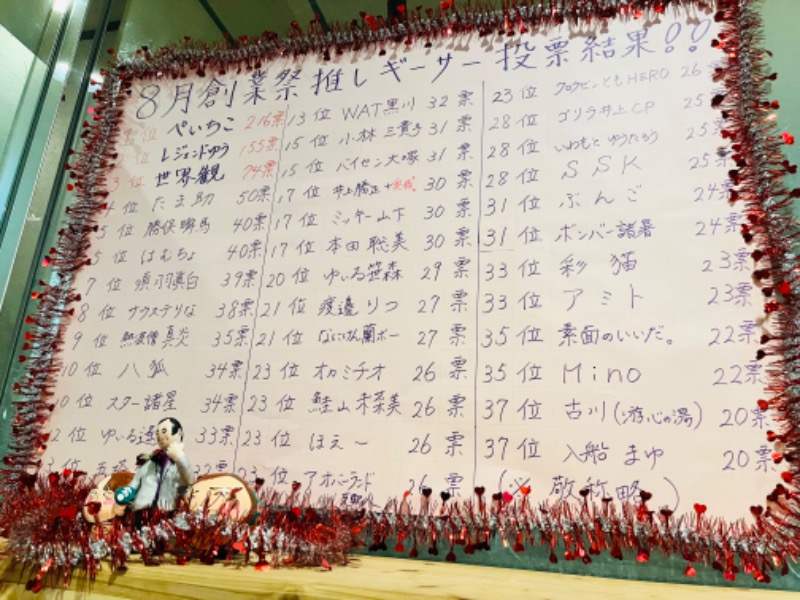 8月創業祭推しギーサー投票結果!!
位 ぺいちこ 216票
2位 レジェンドゆう 155票
3位 世界観 74票
4位 たま助 50票
5位 勝俣
馬 40票
5位 はむちょ 40票
7位 須羽真白 39票
8位 サウステりな 38票
9位 熱波僧 真炎 35票
10位 八狐 34票
10位 スター諸星 34票
2位 ゆいる 33票
32票
13位 WAT黒川 32票
15位 小林 三貴 31票
15位 バイセン大塚 31票
17位 井上勝正 30票
17位 ミッキー山下 30票
17位 本田聡美 30票
20位 ゆいる笹森 29票
21位 渡邊りつ 27票
21位 なにけん蘭ボー 27票
23位 オカミチオ 26票
23位 鮭山未菜美 26票
23位 ほえ〜 26票
23位 アオバーランド 26票
23位 クロワビンともHERO 26
28位 ゴリラ井上CP 25
28位 いわもと ゆうたろう 25票
28位 SSK 25票
31位 ぶんご 24票
31位 ボンバー諸暑 24票
33位 彩猫 23票
33位 アミト 23票
35位 素面のいいだ。 22票
35位 Mino 22票
37位 古川(游心の湯) 20票
37位 入船まゆ 20票
(※ 敬称略 )